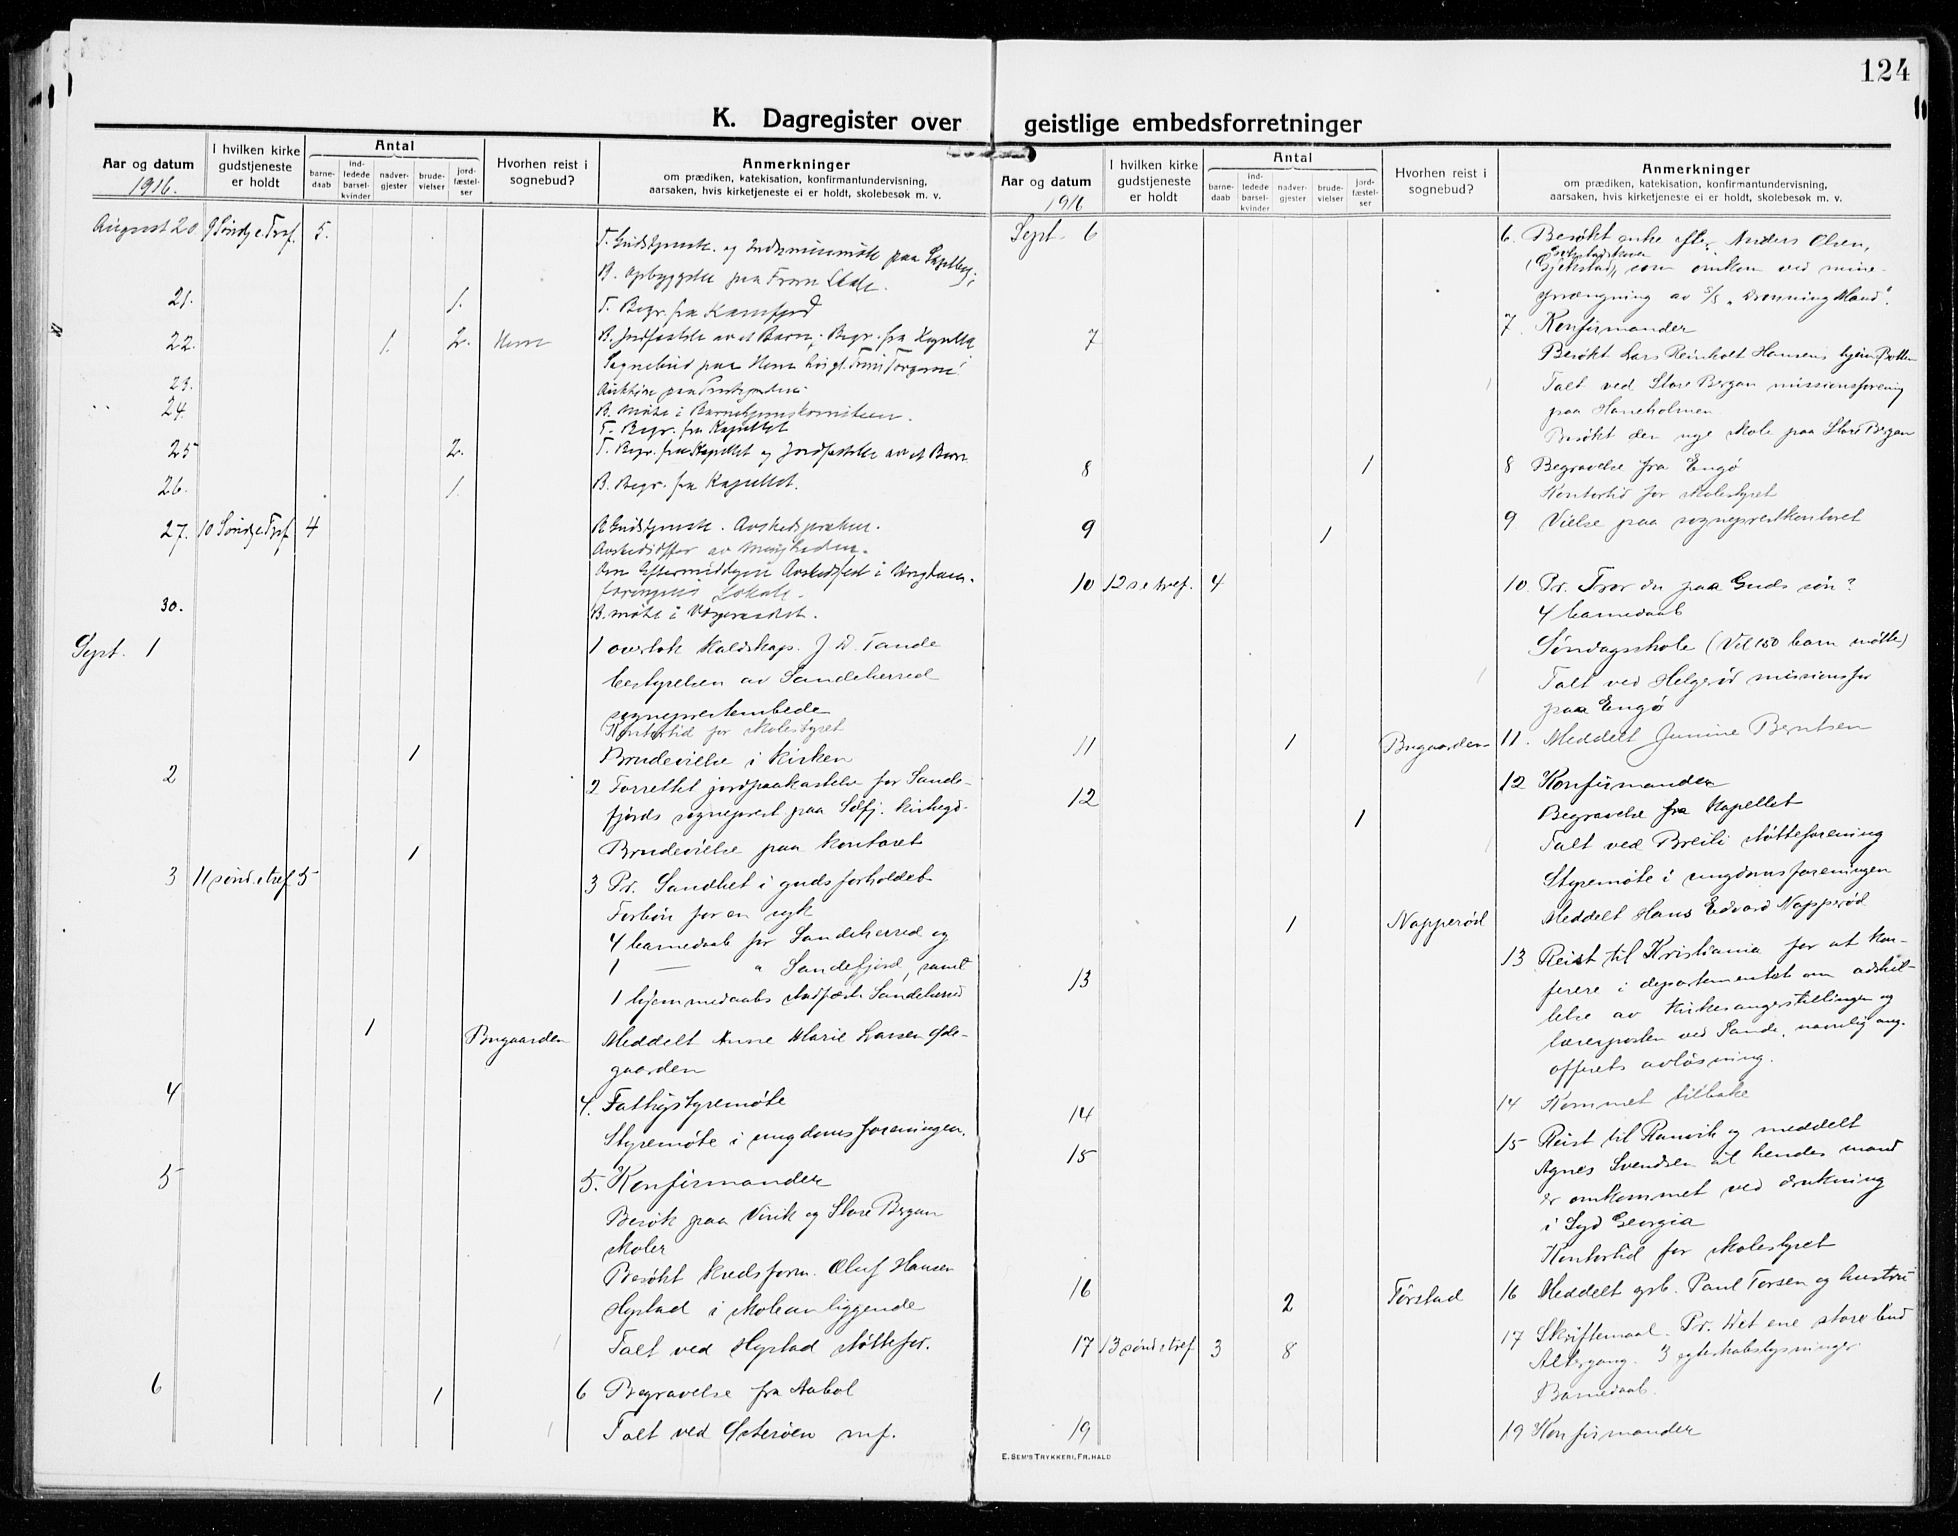 124
K. Dagregister over geistlige embedsforretninger
Aar og datum
1916.
I hvilken kirke
gudstjeneste
er holdt
Antal
barne-
daab
ind-
ledede
barsel-
kvinder
nadver-
gjester
brude-
vielser
jord-
fæstel-
ser
Hvorhen reist i
sognebud?
Anmerkninger
om prædiken, katekisation, konfirmantundervisning,
aarsaken, hvis kirketjeneste ei er holdt, skolebesøk m. v.
August 20 9 Sönd e Tref. 5. T. Gudstjeneste og Indremissionsmöte paa
B. Opbyggelse paa Fram Skole.
21. 1. T. Begr. fra Kamfjord
22. 1. 2. Herre B. Jordfæstelse av et Barn; Begr. fra Kapellet
Sognebud paa
23. Auktion paa
24 B. Möte i
T. Begr. fra Kapellet
25 2. T. Begr. fra Kapellet og Jordfæstelse av et Barn
26. 1. B. Begr. fra Kapellet.
27. 10 Sönd e Tref 4 Gudstjeneste. Avskedspræken.
Avskedsoffer av Menigheden.
Om Eftermiddagen Avskedsfest i Ungdoms-
foreningens Lokale.
30. B. möte i Vergeraadet.
Sept. 1 1 overtok kaldskap. J. D. Tande
bestyrelsen av Sandeherred
sogneprestembede
Kontortid for skolestyret
1 Brudevielse i kirken
2 2 Forrettet jordpaakastelse for Sande-
fjords sogneprest paa Sdfj. kirkegd.
1 Brudevielse paa kontoret
3 11 sönd. e tref. 5 3 Pr. Sandhet i gudsforholdet
Forbön for en syk
4 barnedaab for Sandeherred og
1 — " Sandefjord, samt
1 hjemmedaabs stadfæst. Sandeherred
1 Bugaarden Meddelt Anne Marie Larsen Öde-
gaarden
4 4. Fattigstyremöte
Styremöte i ungdomsforeningen.
5 5. Konfirmander
Besök paa Virik og Store Bergan
skoler
Besökt kredsform. Oluf Hansen
Hystad i skoleanliggende
Talt ved Hystad stöttefor.
6 1 6 Begravelse fra Aabol
Talt ved Österöen mf.
Aar og datum
1916
I hvilken kirke
gudstjeneste
er holdt
Antal
barne-
daab
ind-
ledede
barsel-
kvinder
nadver-
gjester
brude-
vielser
jord-
fæstel-
ser
Hvorhen reist i
sognebud?
Anmerkninger
om prædiken, katekisation, konfirmantundervisning,
aarsaken, hvis kirketjeneste ei er holdt, skolebesøk m. v.
Sept. 6 6. Besökt enke efter Anders Olsen,
(Gjekstad), som omkom ved mine-
sprængning av S/S "Dronning Maud".
7 7. Konfirmander
Besökt Lars Reinholt Hansens hjem,
Talt ved Store Bergan missionsforening
paa Haneholmen
Besökt den nye skole paa Store Bergan
8 1 8 Begravelse fra Engö
Kontortid for skolestyret
9 1 9. Vielse paa sogneprestkontoret
10 12 s. e. tref. 4 10. Pr. Tror du paa Guds sön?
4 barnedaab
Söndagsskole (Vel 150 barn mötte)
Talt ved Helgeröd missionsfor
paa Engö
11 1 Bugaarden 11. Meddelt Janine Berntsen
12 12 Konfirmander
1 Begravelse fra kapellet
Talt ved Breili stötteforening
Styremöte i ungdomsforeningen
1 Napperöd Meddelt Hans Edvard Napperöd
13 13 Reist til Kristiania for at kon-
ferere i departementet om adskil-
lelse av kirkesangerstillingen og
lærerposten ved Sande, navnlig ang.
offerets avlösning.
14 14 Kommet tilbake
15 15 Reist til Ranvik og meddelt
Agnes Svendsen at hendes mand
er omkommet ved drukning
i Syd Georgia
Kontortid for skolestyret
16 2 Törstad 16 Meddelt grb. Paul Torsen og hustru
17 13 sönd e tref 3 8 17 Skriftemaal. Pr. Det ene store bud
Altergang. 3 egteskabslysninger
Barnedaab.
19 19 Konfirmander
E. SEM'S TRYKKERI, FR.HALD